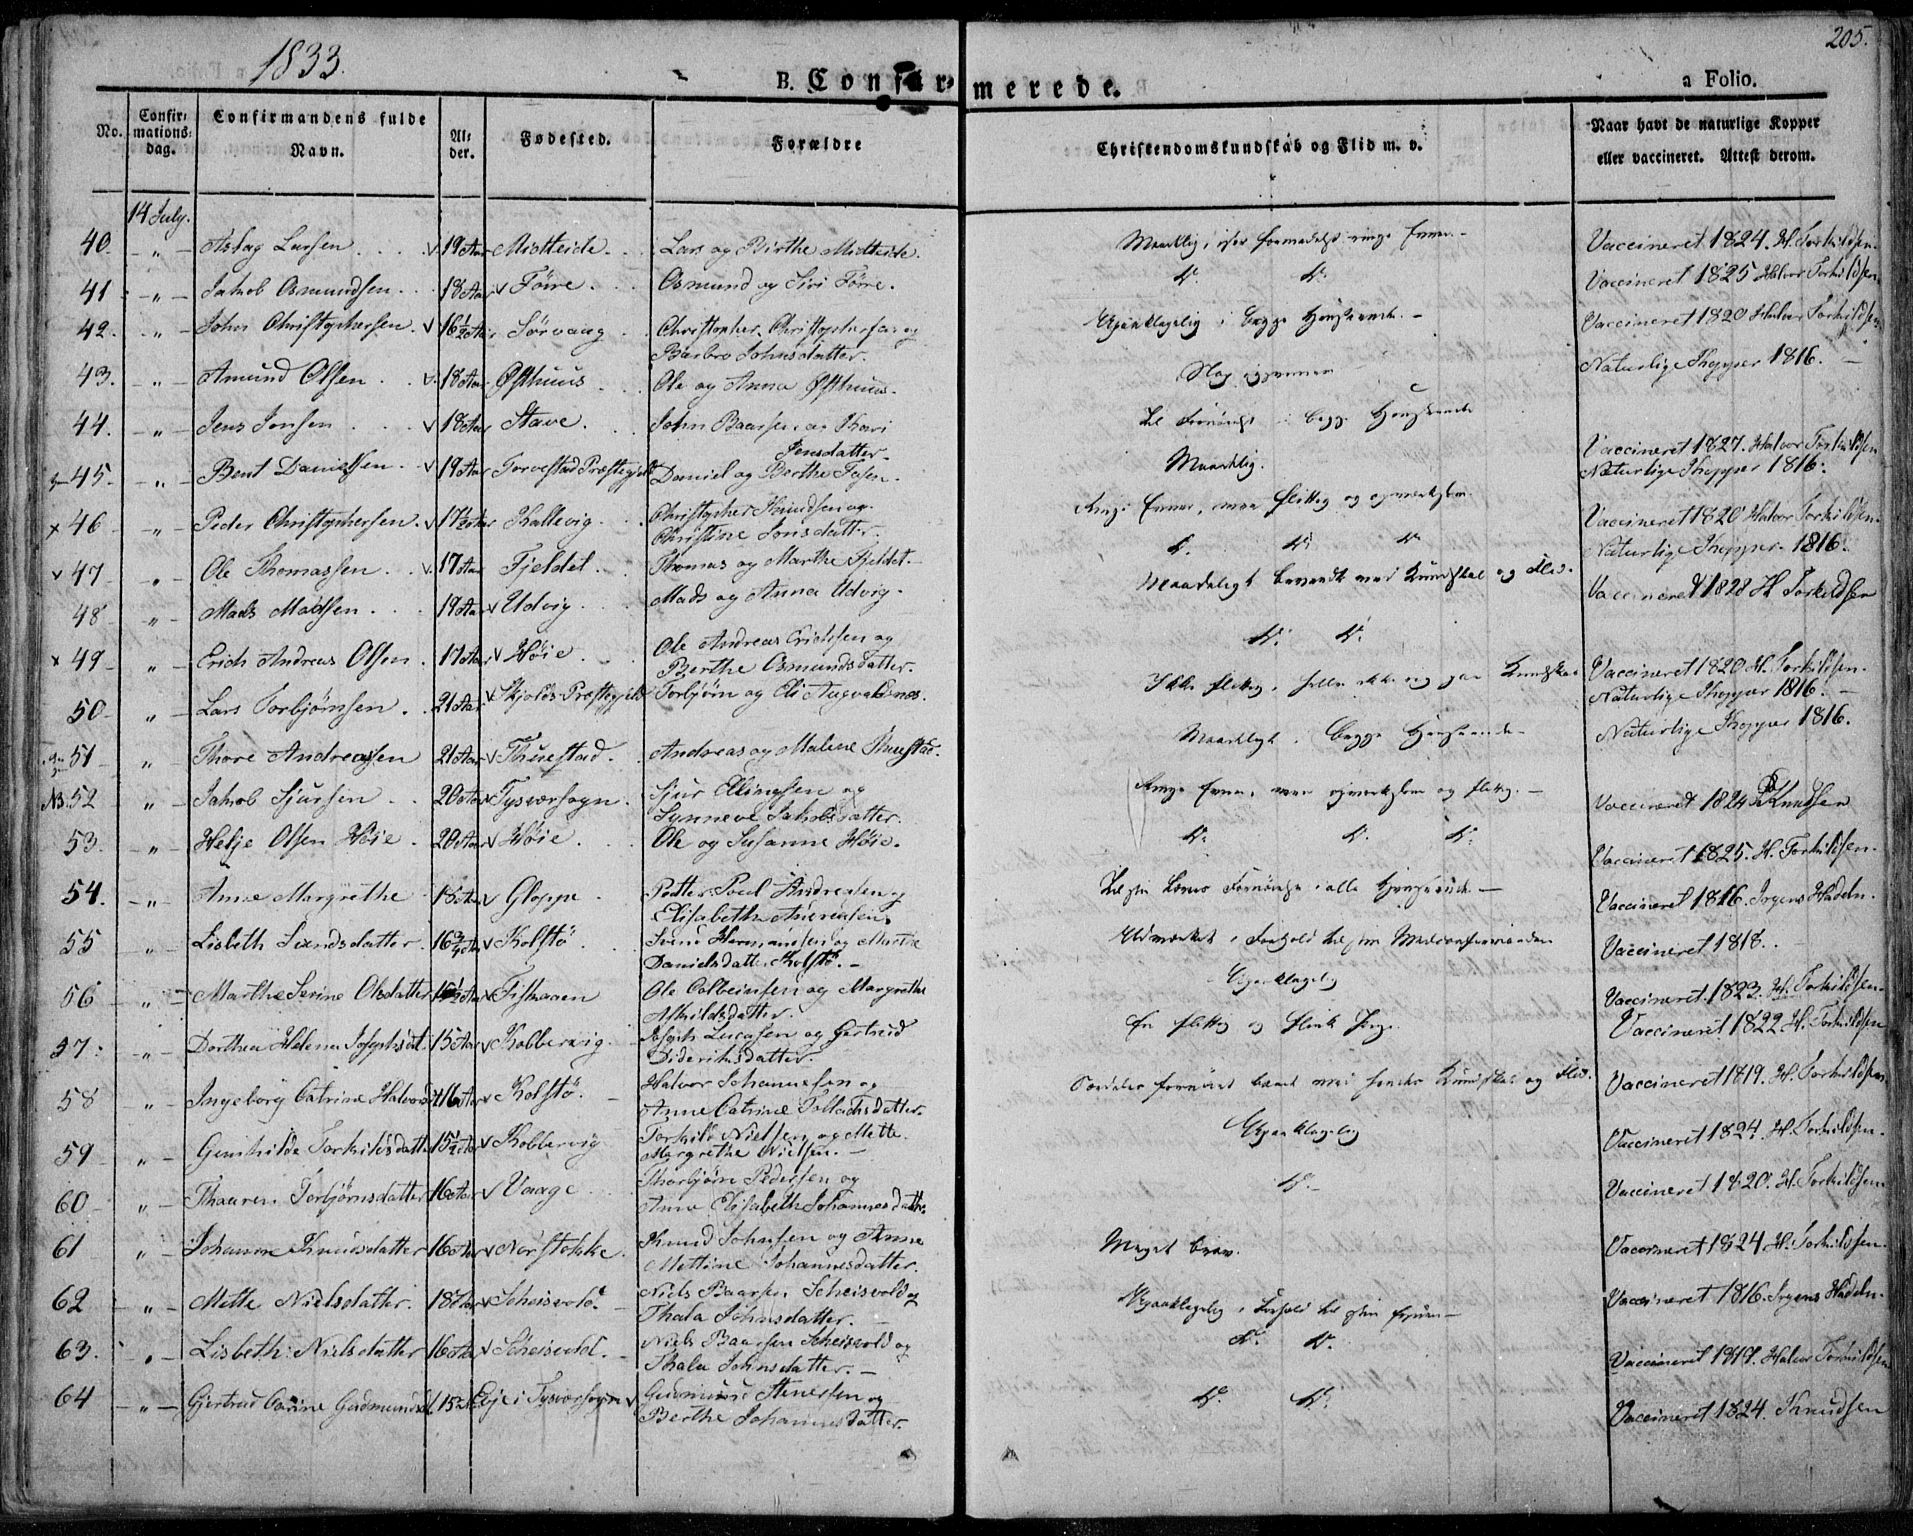 1833.
205.
B. Confirmerede.
a Folio.
No.
Confirmations-dag.
Confirmandens fulde Navn.
Alder.
Fødested.
Forældre
Christendomskundskab og Flid m. v.
Naar havt de naturlige Kopper eller vaccineret. Attest derom.
14 July.
40. Aslag Larsen 19 Aar Midteide. Lars og Birthe Midteide. Maadelig, Vaccineret 1824. H. Torkildsen.
41 Jakob Osmundsen 18 Aar Føire. Osmund og Siri Føire. Do. Do. Vaccineret 1825 Halvor Torkildsen
42. John Christophersen. 16½ Aar Sørvaag Christopher Christophersen og Barbro Johnsdatter. Upaaklagelig i begge Henseender. Vaccineret 1820 Halvor Torkildsen
43. Amund Olsen 18 Aar Østhuus Ole og Anna Østhuus. Naturlige Kopper 1816.
44. Jens Jonsen 18 Aar Stave. John Baarsen og Kari Jensdatter. Til Fornøielse i begge Henseender Vaccineret 1827. Halvor Torkildsen
45. Bent Danielsen 19 Aar Torvestad Præstegjeld Daniel og Berthe Maadelig. Naturlige Kopper 1816.
46 Peder Christophersen. 17½ Aar Kallevig. Christopher Knudsen og Christine Jonsdatter. Ringe Evner, men flittig og opmærksom. Vaccineret 1820 Halvor Torkildsen.
47 Ole Thomassen 17 Aar Fjeldet. Thomas og Marthe Fjeldet. Do. Do. Do. Naturlige Kopper 1816.
48 Mads Madsen 19 Aar Udvig. Mads og Anna Udvig. Maadeligt bevandt med Kundskab og Flid. Vaccineret 1828 H Torkildsen
49 Erich Andreas Olsen 17 Aar Høie Ole Andreas Erichsen og Berthe Osmundsdatter. Do. Do. Vaccineret 1820 H. Torkildsen.
50 Lars Torbjørnsen 21 Aar Skjolds Præstegjeld Torbjørn og Eli Augvaldsnes. Ikke flittig, heller ikke Kundskab Naturlige Kopper 1816.
51 Thore Andreassen 21 Aar Thuestad. Andreas og Malene Thuestad. Maadeligt i begge Henseender Naturlige Kopper 1816.
NB. 52 Jakob Sjursen 20 Aar Tysvær sogn. Sjur Ellingsen og Synneve Jakobsdatter. Ringe Evner, men opmærksom og flittig. Vaccineret 1824 Knudsen
53. Helje Olsen Høie 20 Aar Høie. Ole og Susanne Høie. Do. Do. Do. Vaccineret 1825. H. Torkildsen.
54. Anne Margrethe 18 Aar Gloppe Petter Poul Andreasen og Elisabeth Andreasen. Fornøielse i alle Henseender Vaccineret 1816. Irgens Hadeln.
55 Lisbeth Svendsdatter 16¾ Aar Kolstø Svend Hermansen og Marthe Danielsdatter Kolstø. Udmærket i Forhold til sine Medconfirmander Vaccineret 1818.
56 Marthe Serine Olsdatter 16½ Aar Fiskaaen Ole Colbeinsen og Margrethe Askildsdatter. Upaaklagelig Vaccineret. 1823. H. Torkildsen.
57. Dorthea Helena Josephsdt. 15 Aar Kolbervig. Joseph Lucasen og Gertrud Dideriksdatter. En flittig og flink Pige. Vaccineret 1822 H. Torkildsen
58 Ingeborg Catrine Halvorsdt 16 Aar Kolstø. Halvor Johannesen og Anne Catrine Tollachsdatter. Særdeles fornøiet med hendes Kundskab og Flid. Vaccineret 1819. H. Torkildsen
59 Gunhilde Torkildsdatter 15½ Aar Kobbervig Torkild Nielsen og Mette Margrethe Nielsen. Upaaklagelig Vaccineret 1824. H. Torkildsen.
60 Thaaren Torbjørnsdatter 16 Aar Vaage Thorbjørn Pedersen og Anne Elisabeth Johannesdatter. Do. Vaccineret 1820. H. Torkildsen
61 Johanne Knudsdatter 16 Aar Norstokke. Knud Johnsen og Anne Mettine Johannesdatter. Meget brav. Vaccineret 1824. H. Torkildsen.
62 Mette Nielsdatter. 18 Aar Scheisvold. Niels Baarsen Scheisvold og Thala Johnsdatter. Upaaklagelig i Forhold til sine Evner Vaccineret 1816. Irgens Hadeln.
63. Lisbeth Nielsdatter 16 Aar Scheisvold. Niels Baarsen Scheisvold og Thala Johnsdatter. Do. Do. Vaccineret 1819. Halvor Torkildsen
64 Gjertrud Carine Gudmundsd. 15½ Aar Eje i Tysværsogn Gudmund Stenersen og Berthe Johannesdatter. Do. Do. Vaccineret 1824. Knudsen